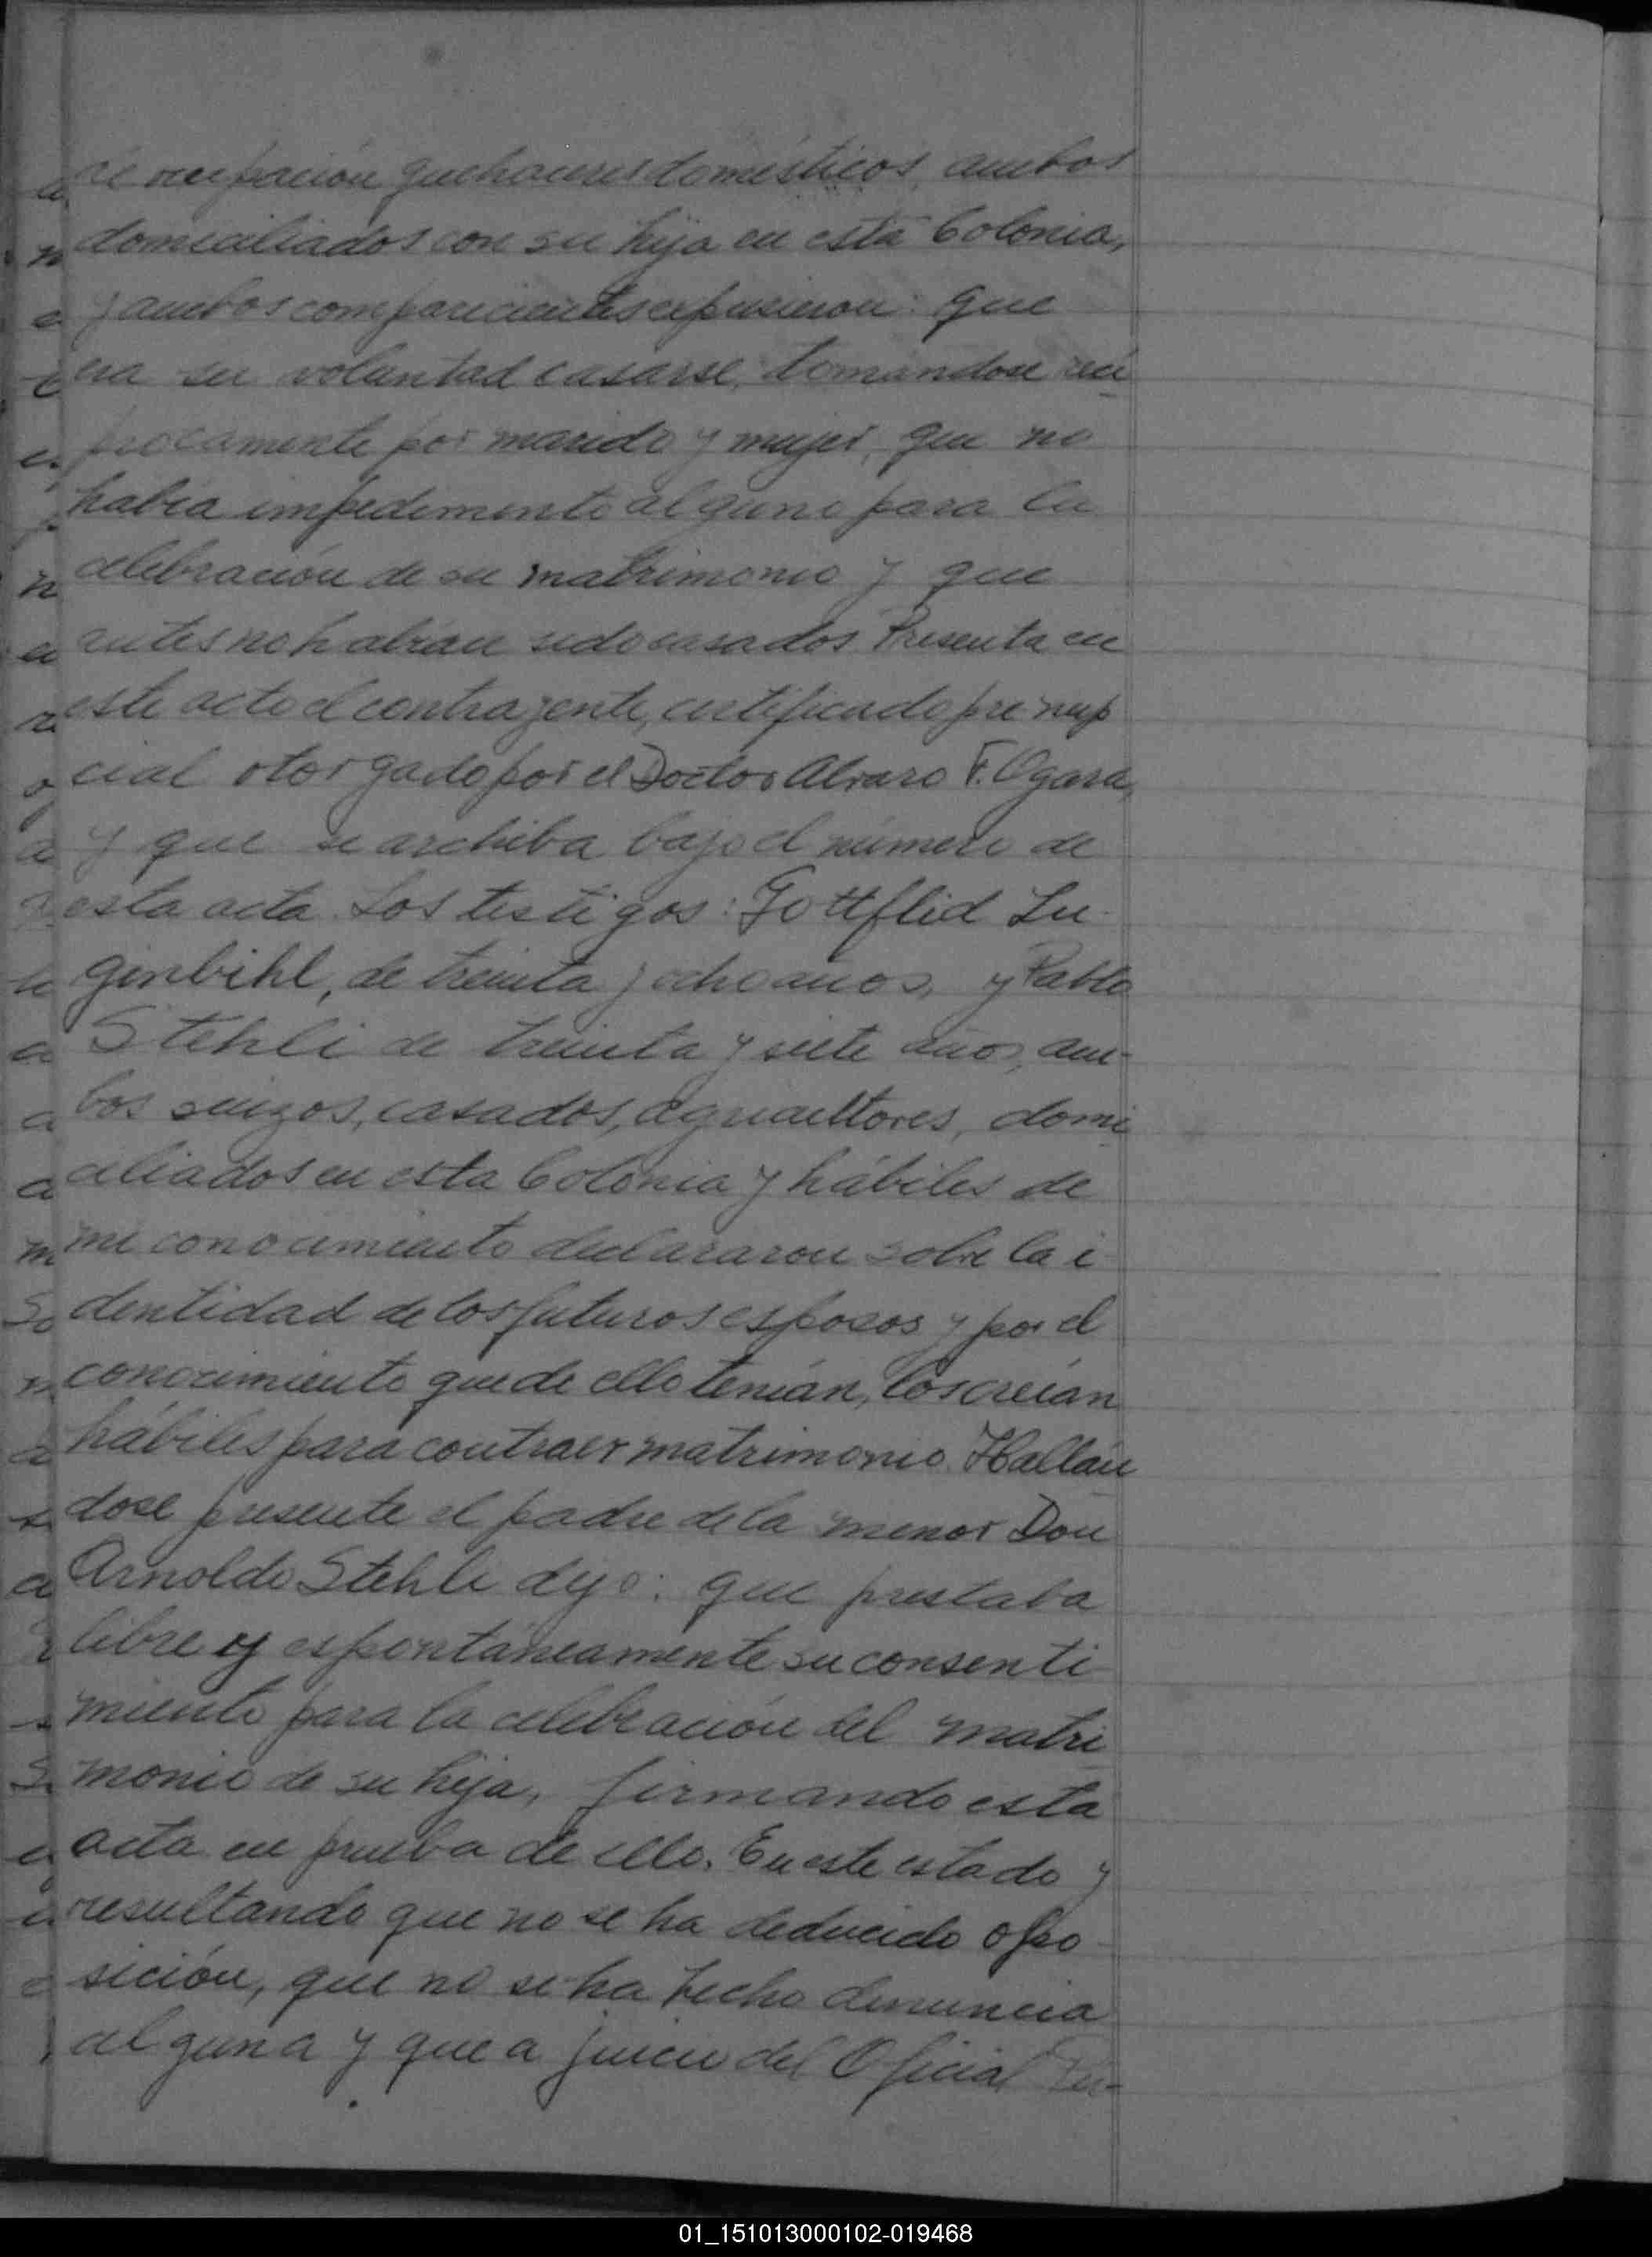 de ocupación quehaceres domésticos, ambos
domiciliados con su hija en esta Colonia,
y ambos comparecientes expusieron: que
era su voluntad casarse, tomandose reci
procamente por marido y mujer, que no
había impedimento alguno para la
celebración de su matrimonio y que
antes no habían sido casados. Presenta en
este acto el contrayente, certificado pre nup
cial otorgado por el Doctor Alvaro F. Ogara,
y que se archiba bajo el número de
esta acta. Los testigos: Gottflid Lu-
ginbihl, de treinta y ocho años, y Pablo
Stehli de treinta y siete años, am-
bos suizos, casados, agricultores, domi
ciliados en esta Colonia y hábiles de
mi conocimiento declararon sobre la i
dentidad de los futuros esposos y por el
conocimiento que de ello tenían, los creían
hábiles para contraer matrimonio. Hallán
dose presente el padre de la menor Don
Arnoldo Stehli dijo: que prestaba
libre y espontáneamente su consenti
miento para la celebración del matri
monio de su hija, firmando esta
acta en prueba de ello. En este estado y
resultando que no se ha deducido opo-
sición, que no se ha hecho denuncia
alguna y que a juicio del Oficial
01_151013000102-019468